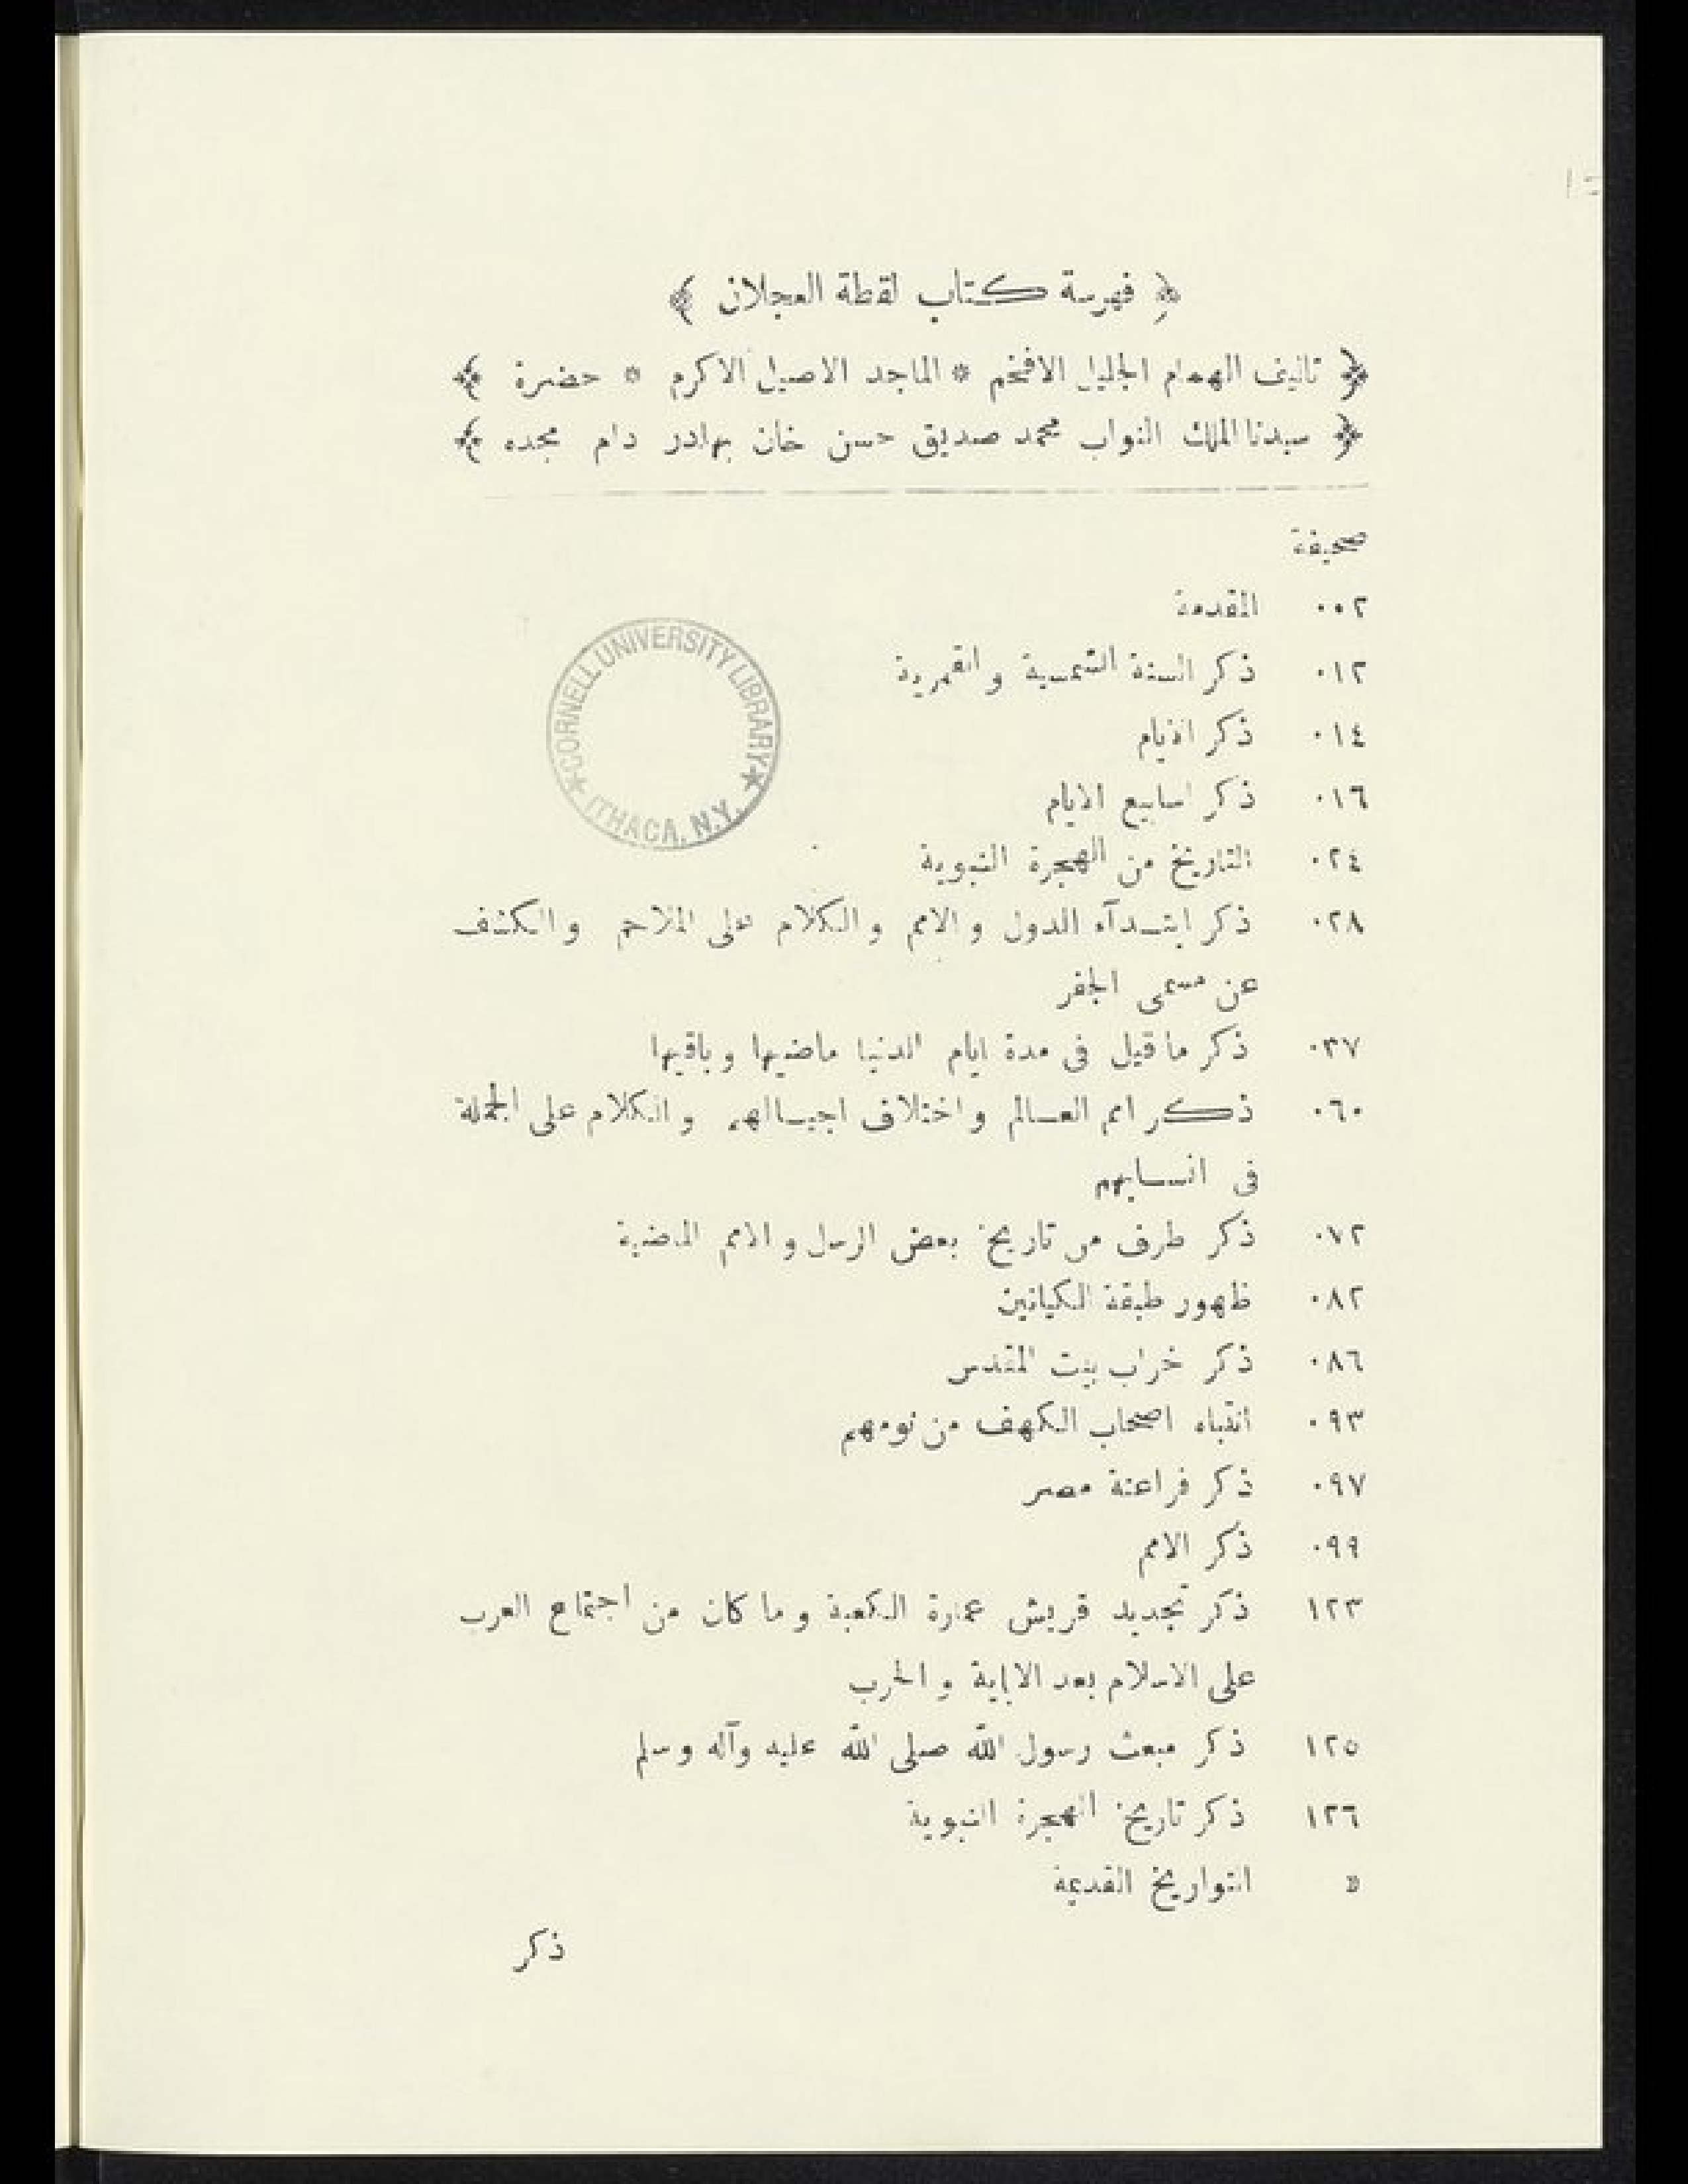 ﴿ فهرسة كتاب لقطة العجلان ﴾
﴿ تأليف الهمام الجليل الافخم * الماجد الاصيل الاكرم * حضرة ﴾
﴿ سيدنا الملك النواب محمد صديق حسن خان بهادر دام مجده ﴾
صحيفة
٠٠٢ المقدمة
٠١٢ ذكر السنة الشمسية والقمرية
٠١٤ ذكر الايام
٠١٦ ذكر اسابيع الايام
٠٢٤ التاريخ من الهجرة النبوية
٠٢٨ ذكر ابتـدآء الدول والامم والكلام على الملاحم والكشف
عن مسمى الجفر
٠٣٧ ذكر ما قيل فى مدة ايام الدنيا ماضيها وباقيها
٠٦٠ ذكر امم العـالم واختلاف اجيـالهم والكلام على الجملة
فى انسـابهم
٠٧٢ ذكر طرف من تاريخ بعض الرسل والامم الماضية
٠٨٢ ظهور طبقة الكيانين
٠٨٦ ذكر خراب بيت المقدس
٠٩٣ انتباه اصحاب الكهف من نومهم
٠٩٧ ذكر فراعنة مصر
٠٩٩ ذكر الامم
١٢٣ ذكر تجديد قريش عمارة الكعبة وما كان من اجتماع العرب
على الاسلام بعد الاباية والحرب
١٢٥ ذكر مبعث رسول الله صلى الله عليه وآله وسلم
١٢٦ ذكر تاريخ الهجرة النبوية
» التواريخ القديمة
ذكر
★CORNELL UNIVERSITY LIBRARY★
ITHACA, N.Y.